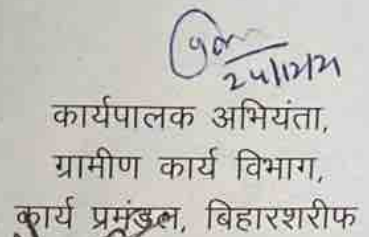 24/12/21
कार्यपालक अभियंता,
ग्रामीण कार्य विभाग,
कार्य प्रमंडल, बिहारशरीफ